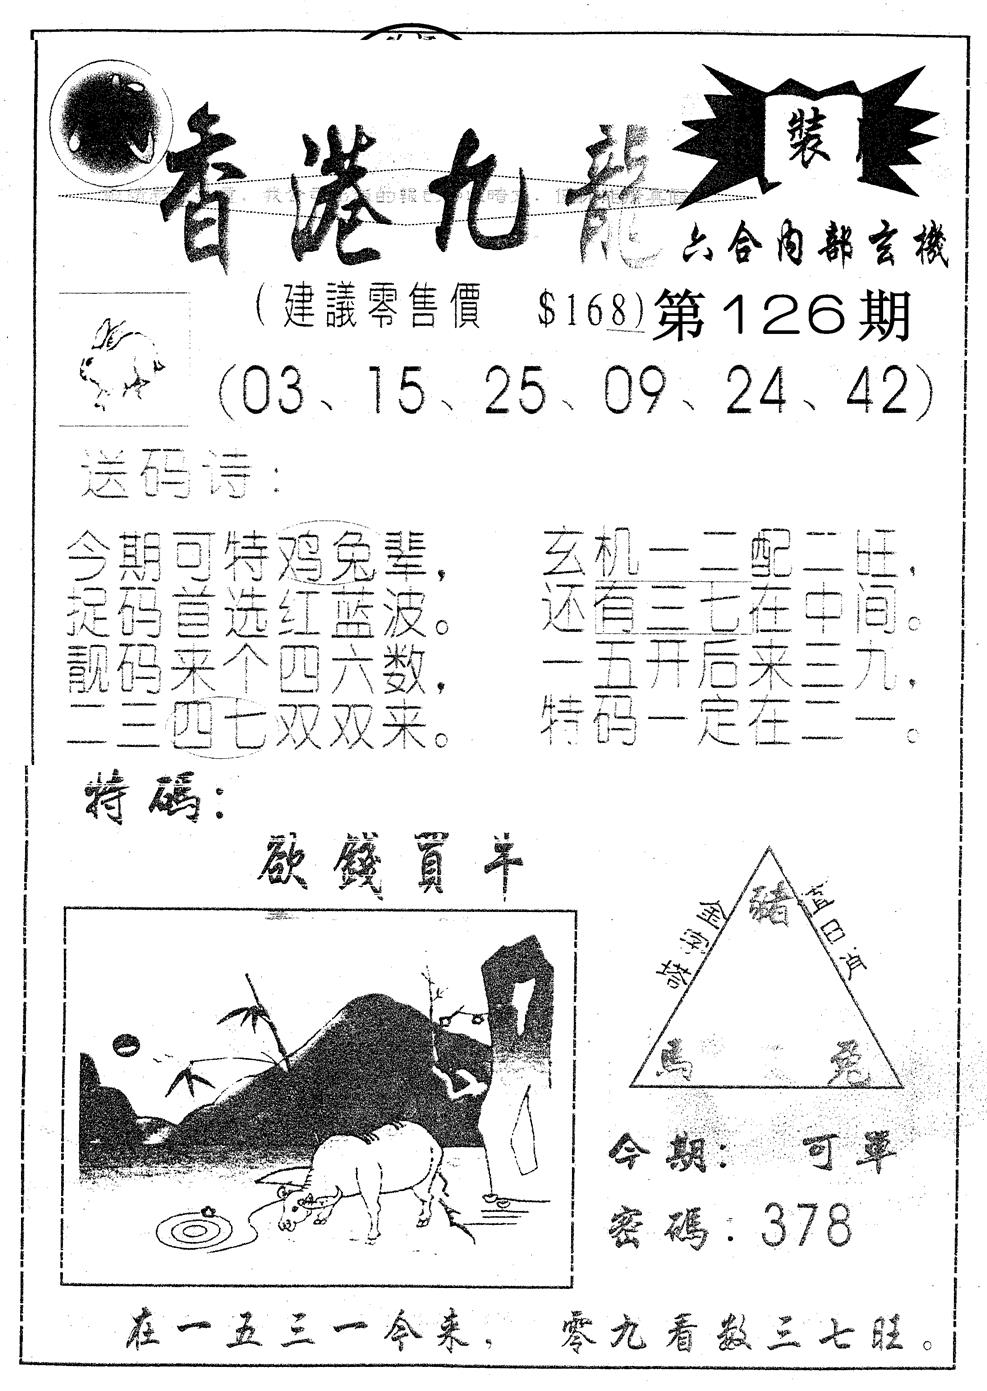 香港九龍
裝
六合內部玄機
(建議零售價 $168)第126期
(03、15、25、09、24、42)
送码诗：
今期可特鸡兔辈，
捉码首选红蓝波。
靓码来个四六数，
二三四七双双来。
玄机一二配二旺，
还有三七在中间。
一五开后来三九，
特码一定在二一。
特碼：
欲錢買牛
豬
金字塔
值日肖
馬
兔
今期： 可單
密碼：378
在一五三一今来， 零九看数三七旺。